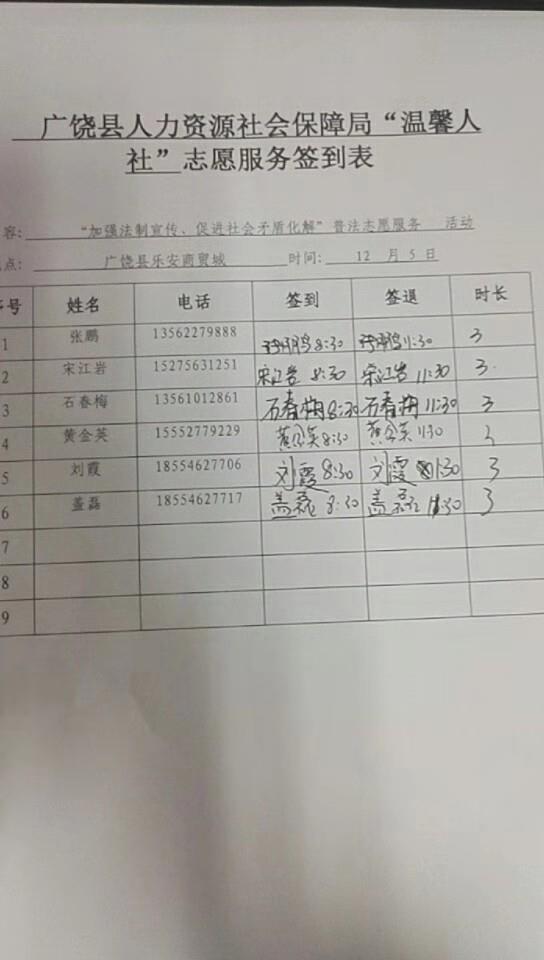 广饶县人力资源社会保障局“温馨人
社”志愿服务签到表
容： “加强法制宣传、促进社会矛盾化解”普法志愿服务 活动
点： 广饶县乐安商贸城 时间： 12 月 5 日
序号 姓名 电话 签到 签退 时长
1 张鹏 13562279888 张鹏 8:30 张鹏 11:30 3
2 宋江岩 15275631251 宋江岩 8:30 宋江岩 11:30 3
3 石春梅 13561012861 石春梅 8:30 石春梅 11:30 3
4 黄金英 15552779229 黄金英 8:30 黄金英 11:30 3
5 刘霞 18554627706 刘霞 8:30 刘霞 11:30 3
6 盖磊 18554627717 盖磊 8:30 盖磊 11:30 3
7
8
9